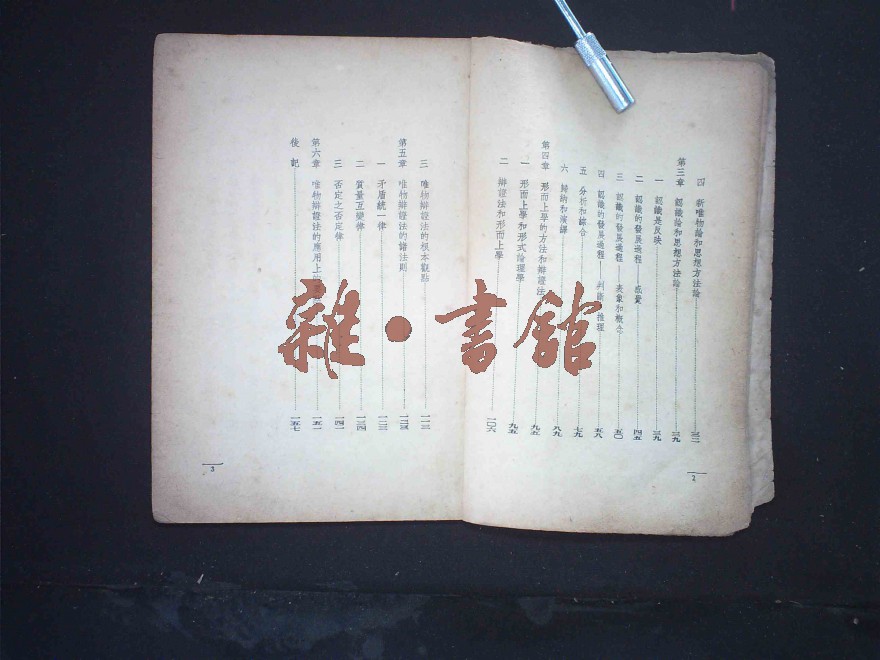 四 新唯物論和思想方法論 三二
第三章 認識論和思想方法論 三九
一 認識是反映 三九
二 認識的發展過程——感覺 四五
三 認識的發展過程——表象和概念 五〇
四 認識的發展過程——判斷 推理 五九
五 分析和綜合 七九
六 歸納和演譯 八九
第四章 形而上學的方法和辯證法 九五
一 形而上學和形式論理學 九五
二 辯證法和形而上學 一〇六
2
三 唯物辯證法的根本觀點 一一三
第五章 唯物辯證法的諸法則 一二三
一 矛盾統一律 一二三
二 質量互變律 一三四
三 否定之否定律 一四二
第六章 唯物辯證法的應用上 一五一
後記 一五七
3
雜·書館